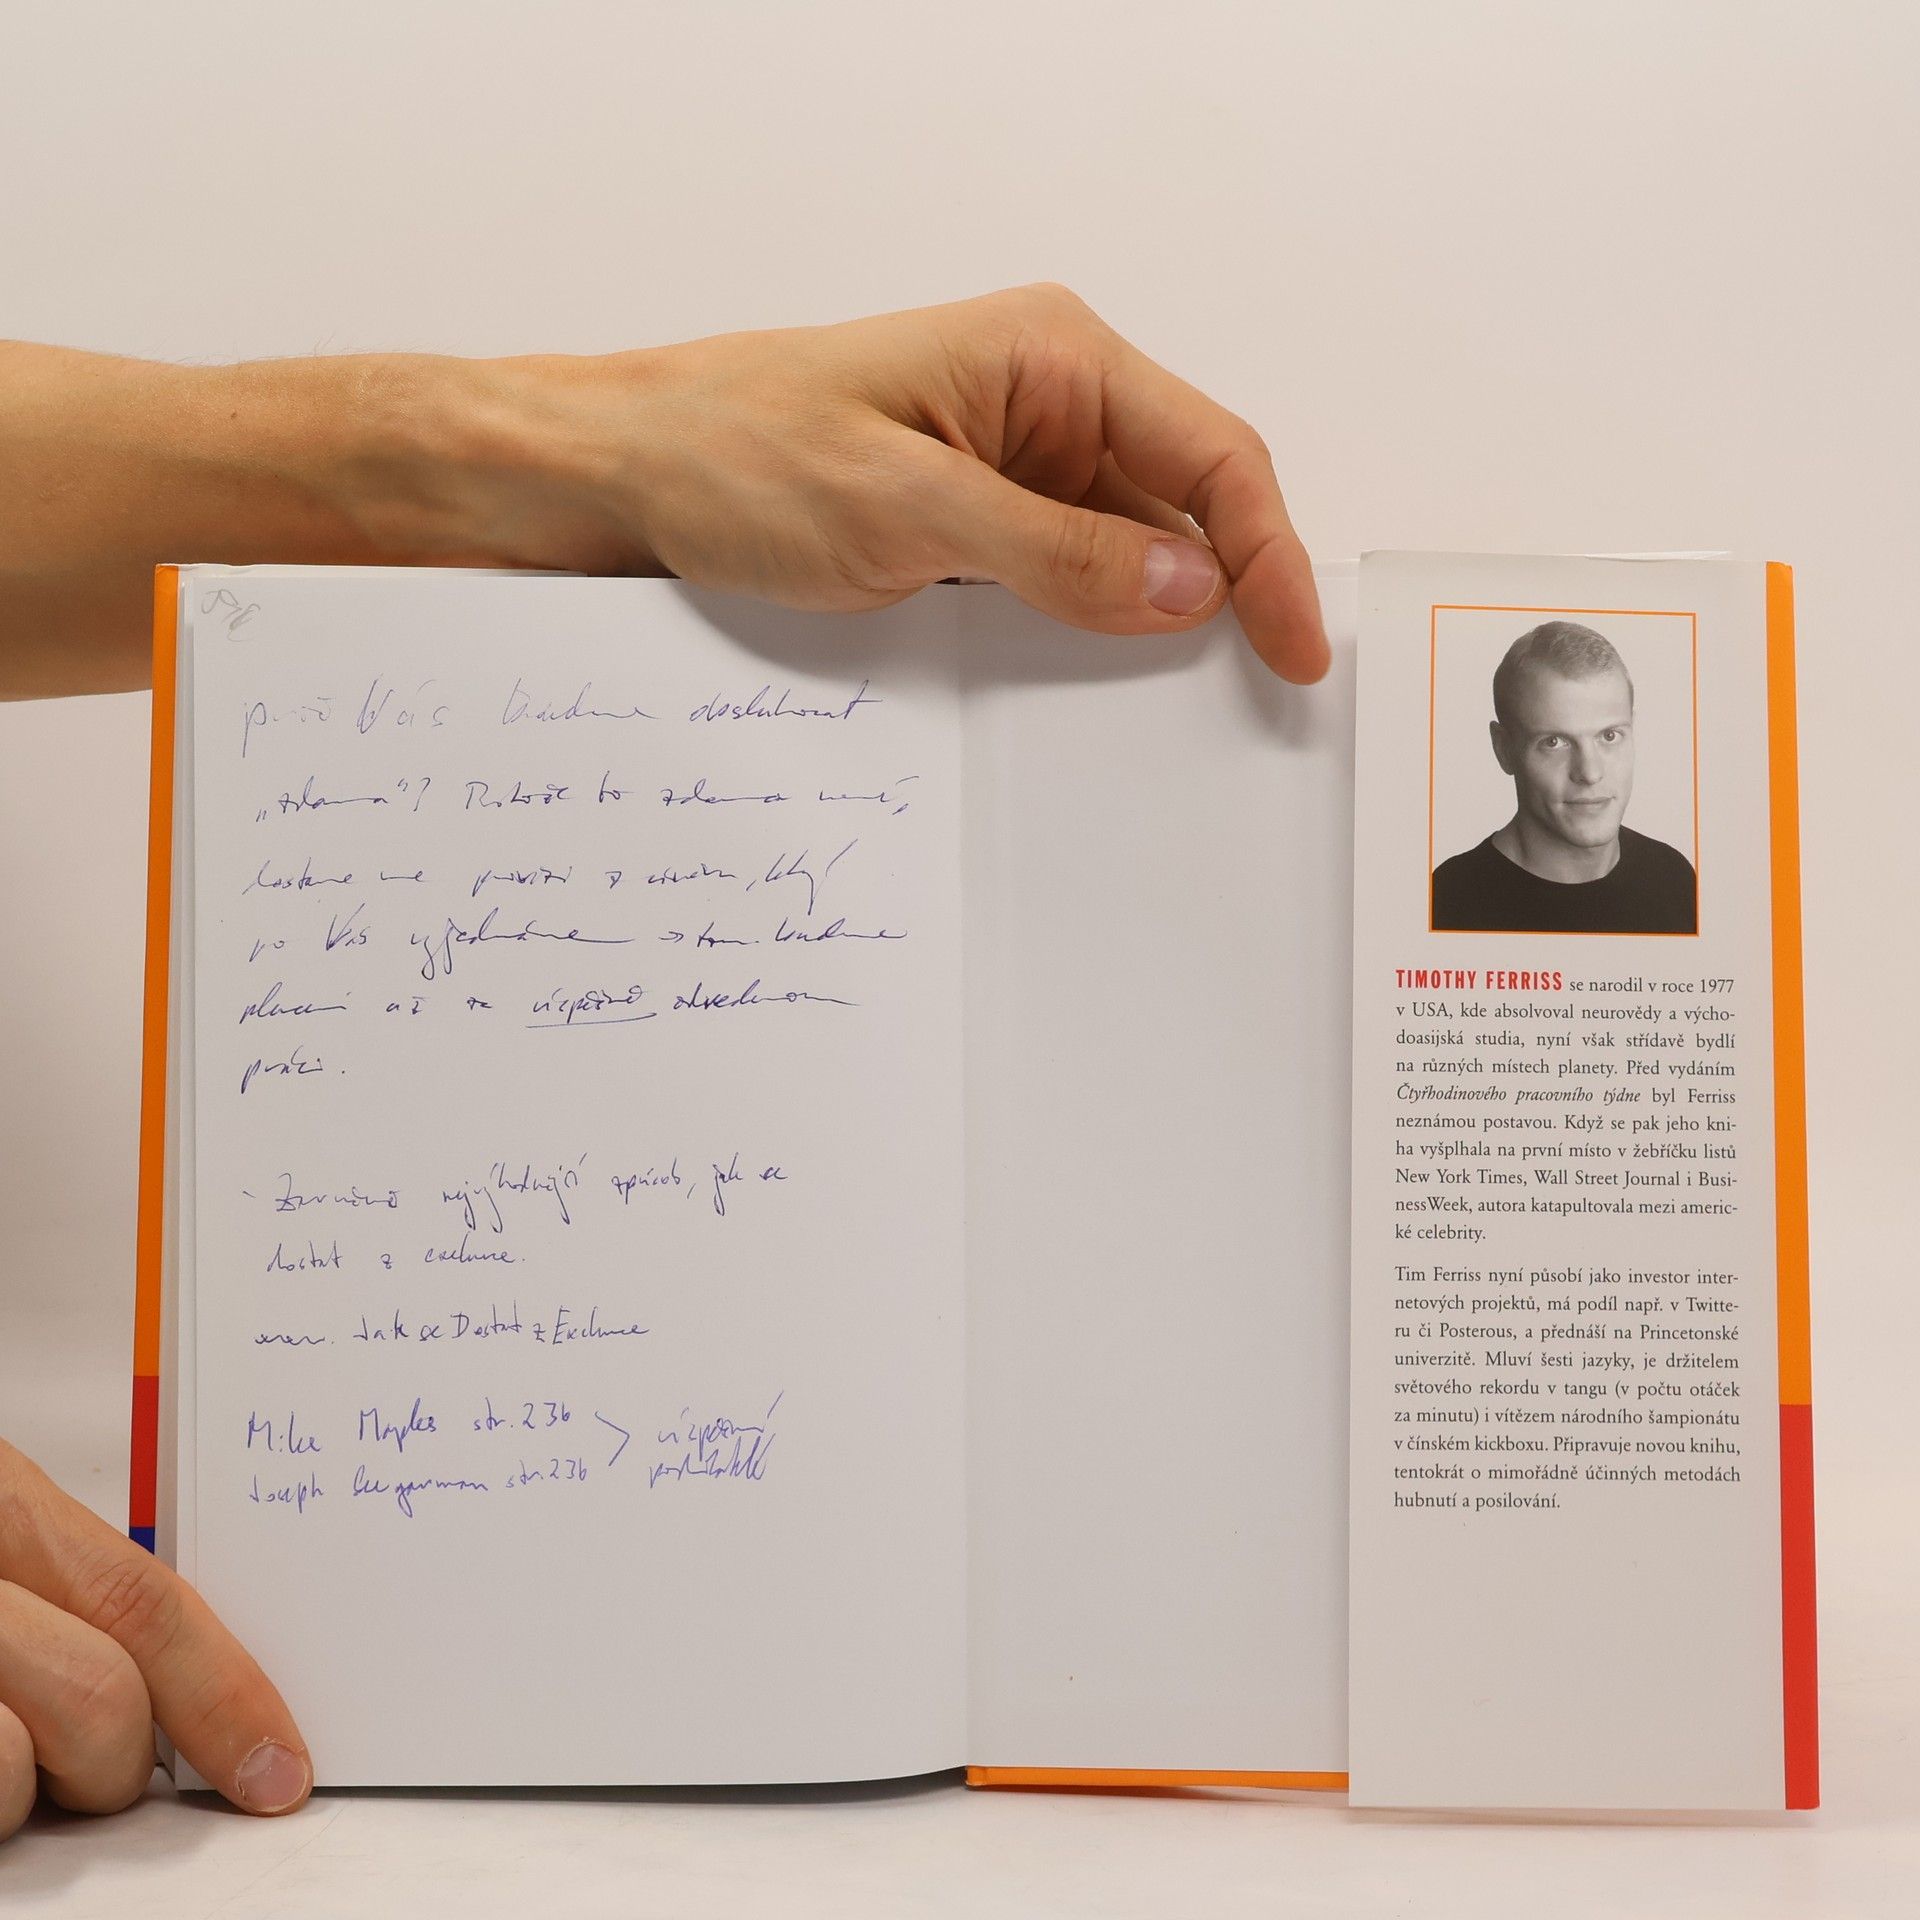 proč Vás budeme obsluhovat
„zdarma“? Protože to zdarma není,
dostaneme provizi z úvěru, který
po Vás vyjednáme → tzn. budeme
placeni až za úspěšně odvedenou
práci.
- Zaručeně nejvýhodnější způsob, jak se
dostat z exekuce.
www. Jak se Dostat z Exekuce
Mike Maples str. 236
Joseph Sugarman str. 236
úspěšní
podnikatelé
TIMOTHY FERRISS se narodil v roce 1977
v USA, kde absolvoval neurovědy a výcho-
doasijská studia, nyní však střídavě bydlí
na různých místech planety. Před vydáním
Čtyřhodinového pracovního týdne byl Ferriss
neznámou postavou. Když se pak jeho kni-
ha vyšplhala na první místo v žebříčku listů
New York Times, Wall Street Journal i Busi-
nessWeek, autora katapultovala mezi americ-
ké celebrity.
Tim Ferriss nyní působí jako investor inter-
netových projektů, má podíl např. v Twitte-
ru či Posterous, a přednáší na Princetonské
univerzitě. Mluví šesti jazyky, je držitelem
světového rekordu v tangu (v počtu otáček
za minutu) i vítězem národního šampionátu
v čínském kickboxu. Připravuje novou knihu,
tentokrát o mimořádně účinných metodách
hubnutí a posilování.